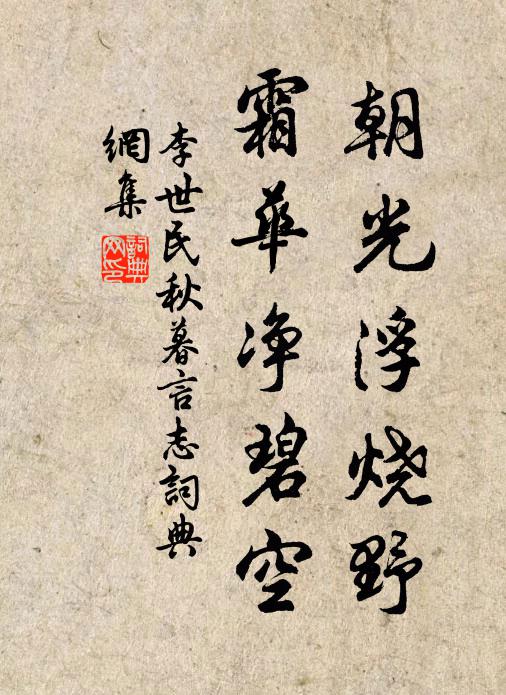 朝光浮烧野
霜華净碧空
李世民秋暮言志詞典
網集
詞典
网印